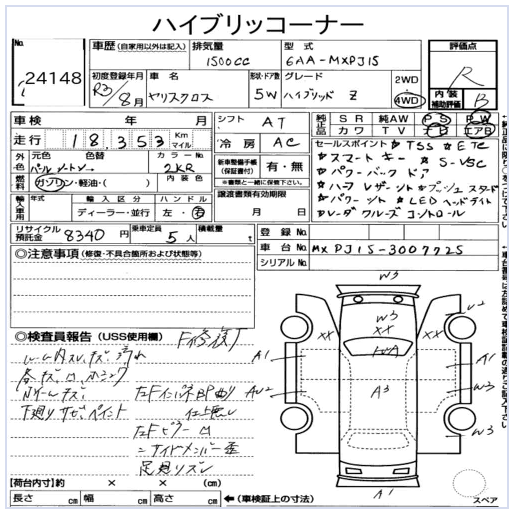 ハイブリッコーナー
No.
24148
車歴 (自家用以外は記入)
排気量
1500cc
型式
6AA-MXPJ15
評価点
R
内装
補助評価
B
初度登録年月
R3/8月
車名
ヤリスクロス
形状・ドア数
5W
グレード
ハイブリッド Z
2WD
4WD
車検 年 月
シフト AT
純正品
SR 純AW PS PW
カワ TV ナビ エアB
走行 18,353 Km マイル
冷房 AC
セールスポイント ☆TSS ☆ETC
☆スマートキー ☆S-VSC
☆パワーバックドア
☆ハーフレザーシート ☆プッシュスタート
☆パワーシート ☆LEDヘッドライト
☆レーダクルーズコントロール
外色
元色 色替
カラーNo.
2KR
新車整備手帳
(保証書付)
有・無
※書類と一緒に保管下さい。
燃料
ガソリン・軽油・( )
内装色
譲渡書類有効期限
月 日
輸入車用
年式
輸入区分
ディーラー・並行
ハンドル
左・右
リサイクル
預託金
8340 円
乗車定員
5人
積載量
t
登録No.
車台No. MXPJ15-3007725
シリアルNo.
◎注意事項 (修復・不具合箇所および状態等)
◎検査員報告 (USS使用欄)
F修復
ルーム内スレキズ 汚れ
下廻りサビペイント
左Fピラー凹
足廻りズレ
W3
U2
W3
XX
XX
XX
A1
A1
A3
AU2
W3
W3
A1
スペア
【荷台内寸】約 × × (cm)
長さ cm 幅 cm 高さ cm
←(車検証上の寸法)